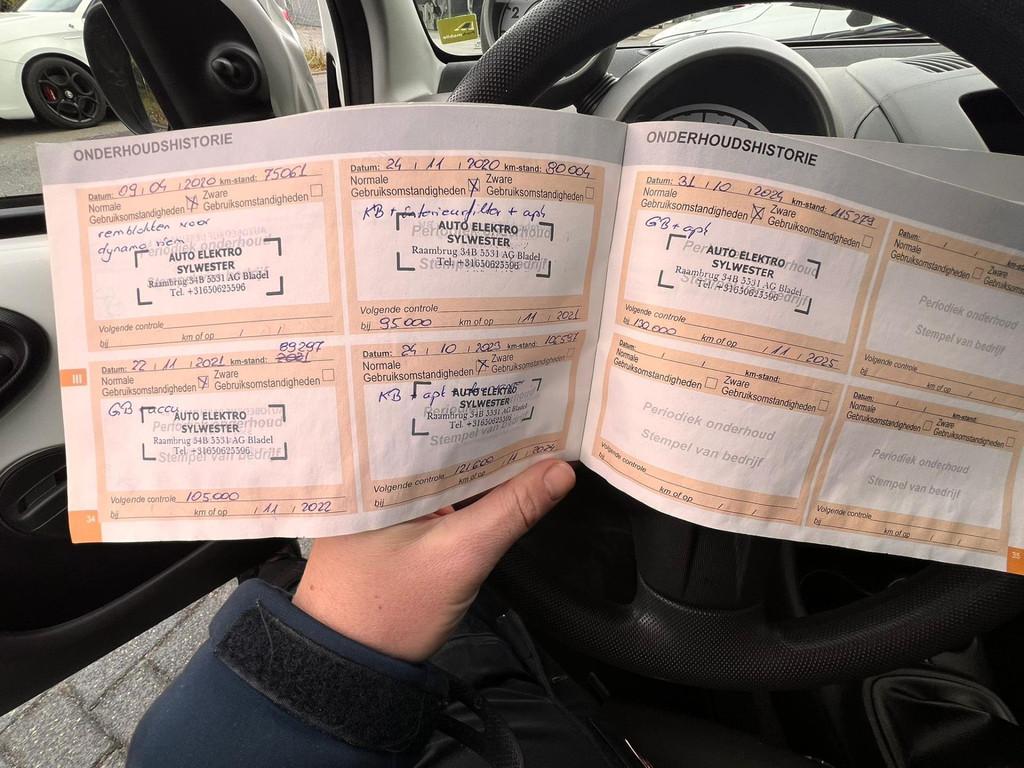 ONDERHOUDSHISTORIE
Datum: 09 , 04 , 2020 km-stand: 75061
Normale Gebruiksomstandigheden X Zware Gebruiksomstandigheden
remblokken voor
dynamo riem
AUTO ELEKTRO
SYLWESTER
Raambrug 34B 5531 AG Bladel
Tel. +31650625596
Volgende controle
bij km of op / /
Datum: 24 , 11 , 2020 km-stand: 80004
Normale Gebruiksomstandigheden X Zware Gebruiksomstandigheden
KB + interieurfilter + apk
AUTO ELEKTRO
SYLWESTER
Raambrug 34B 5531 AG Bladel
Tel. +31650625596
Volgende controle
bij 95000 km of op / 11 / 2021
89297
Datum: 22 , 11 , 2021 km-stand: 2021
Normale Gebruiksomstandigheden X Zware Gebruiksomstandigheden
GB accu
AUTO ELEKTRO
SYLWESTER
Raambrug 34B 5531 AG Bladel
Tel. +31650625596
Stempel van bedrijf
Volgende controle 105000
bij km of op / 11 / 2022
Datum: 24 , 10 , 2023 km-stand:
Normale Gebruiksomstandigheden X Zware Gebruiksomstandigheden
KB + apk
AUTO ELEKTRO
SYLWESTER
Raambrug 34B 5531 AG Bladel
Tel. +31650625596
Stempel van bedrijf
Volgende controle
bij 121600 km of op / 11 / 2024
III
34
ONDERHOUDSHISTORIE
Datum: 31 , 10 , 2024 km-stand: 115279
Normale Gebruiksomstandigheden X Zware Gebruiksomstandigheden
GB + apk
AUTO ELEKTRO
SYLWESTER
Raambrug 34B 5531 AG Bladel
Tel. +31650625596
Volgende controle
bij 130.000 km of op / 11 / 2025
Datum: / / km-stand:
Normale Gebruiksomstandigheden Zware Gebruiksomstandigheden
Periodiek onderhoud
Stempel van bedrijf
Volgende controle
bij km of op / /
Datum: / / km-stand:
Normale Gebruiksomstandigheden Zware Gebruiksomstandigheden
Periodiek onderhoud
Stempel van bedrijf
Volgende controle
bij km of op / /
Datum: / / km-stand:
Normale Gebruiksomstandigheden Zware Gebruiksomstandigheden
Periodiek onderhoud
Stempel van bedrijf
Volgende controle
bij km of op / /
35